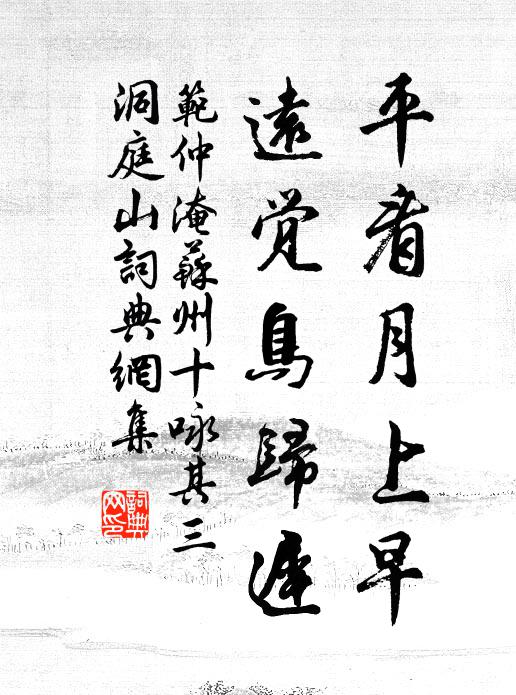 平看月上早
遠覺鳥歸遲
範仲淹蘇州十咏其三
洞庭山詞典網集
詞典
网印